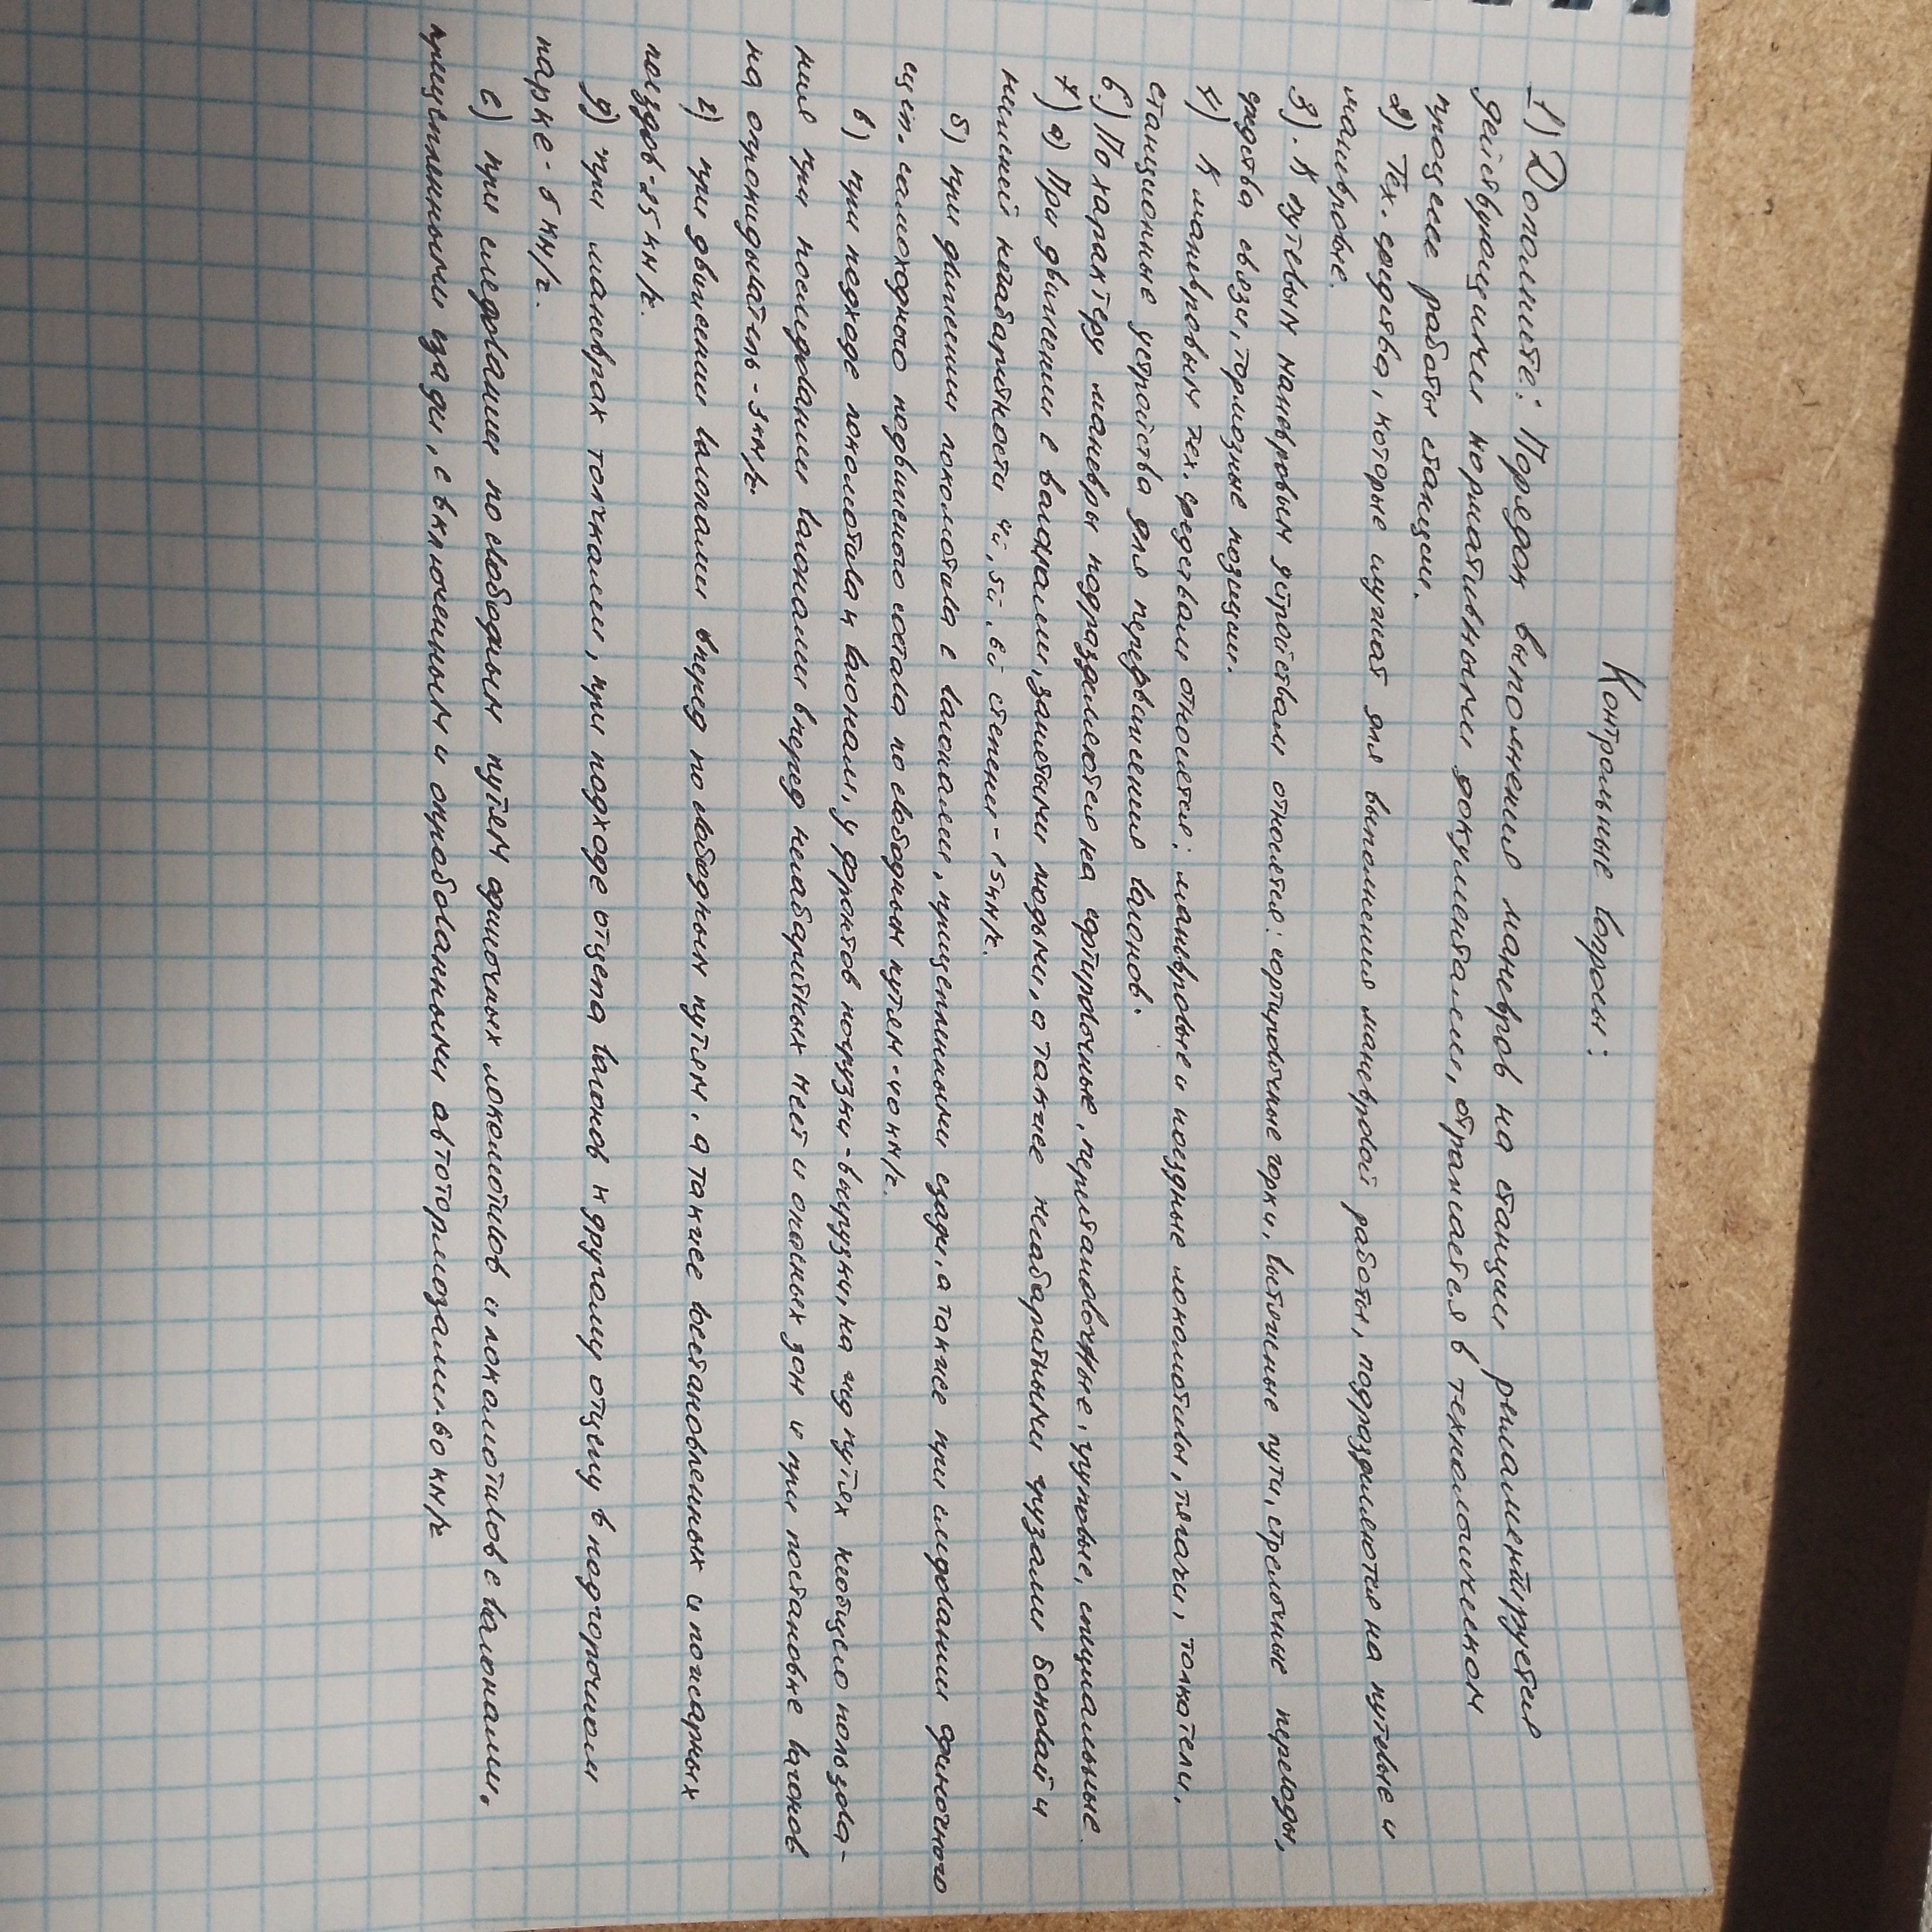 Контрольные вопросы:
1) Дополните: Порядок выполнения маневров на станции регламентируется
действующими нормативными документами, отражается в технологическом
процессе работы станции.
2) Тех. средства, которые служат для выполнения маневровой работы, подразделяются на путевые и
маневровые.
3). К путевым маневровым устройствам относится: сортировочные горки, вытяжные пути, стрелочные переводы,
средства связи, тормозные позиции.
4) К маневровым тех. средствам относится: маневровые и поездные локомотивы, тягачи, толкатели,
станционные устройства для передвижения вагонов.
6) По характеру маневры подразделяются на сортировочные, перестановочные, групповые, специальные.
7) а) При движении с вагонами, занятыми людьми, а также негабаритными грузами боковой и
нижней негабаритности 4й, 5й, 6й степени - 15 км/ч.
б) при движении локомотива с вагонами, прицепленными сзади, а также при следовании одиночного
спец. самоходного подвижного состава по свободным путям - 40 км/ч.
в) при подходе локомотива к вагонам, у фронтов погрузки-выгрузки, на жд путях необщего пользова-
ния при последовании вагонами вперед негабаритных мест и опасных зон и при постановке вагонов
на опрокидыватель - 3 км/ч.
г) при движении вагонами вперед по свободным путям, а также восстановленных и пожарных
поездов - 25 км/ч.
д) при маневрах толчками, при подходе отцепа вагонов к другому отцепу в подгорочном
парке - 5 км/ч.
е) при следовании по свободным путям одиночных локомотивов и локомотивов с вагонами,
прицепленными сзади, с включенными и опробованными автотормозами - 60 км/ч